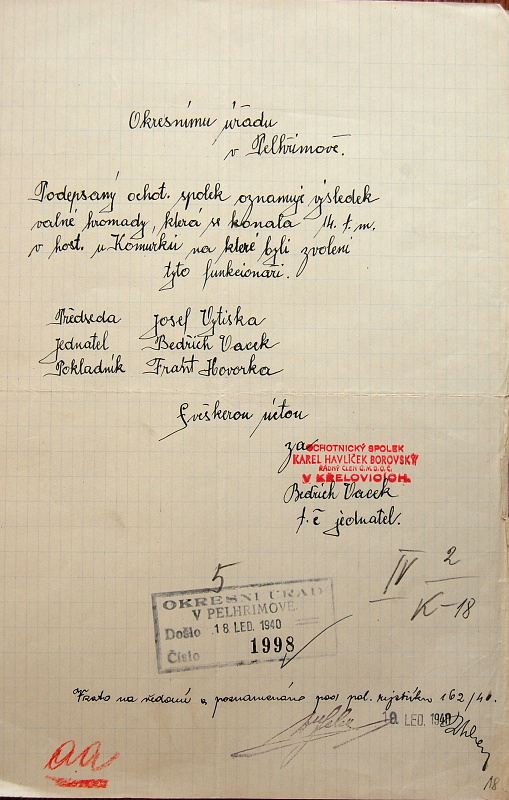 Okresnímu úřadu
v Pelhřimově.
Podepsaný ochot. spolek oznamuje výsledek
valné hromady, která se konala 14. t. m.
v host. u Komurků na které byli zvoleni
tyto funkcionáři.
Předseda Josef Vytiska
Jednatel Bedřich Vacek
Pokladník Frant Hovorka
S veškerou úctou
za
OCHOTNICKÝ SPOLEK
KAREL HAVLÍČEK BOROVSKÝ
ŘÁDNÝ ČLEN Ú.M.D.O.Č.
V KŘELOVICÍCH.
Bedřich Vacek
t. č jednatel.
5
IV 2
K-18
OKRESNÍ ÚŘAD
V PELHŘIMOVĚ.
Došlo 18 LED. 1940
Číslo 1998
Vzato na vědomí a poznamenáno pod pol. rejstříku 162/40.
19. LED. 1940
aa
18